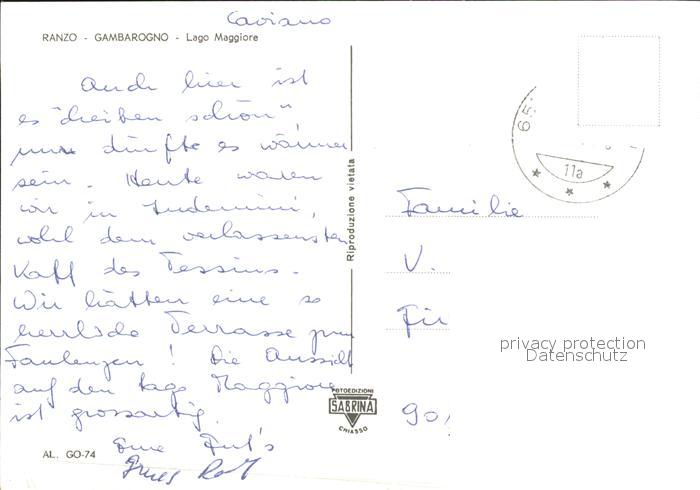 Caviano
RANZO - GAMBAROGNO - Lago Maggiore
Auch hier ist
es "
schön",
nur dürfte es wärmer
sein. Heute waren
wir in Indemini,
wohl dem verlassensten
Kaff des Tessins.
Wir hätten eine so
herrliche Terrasse zum
Faulenzen! Die Aussicht
auf den Lago Maggiore
ist grossartig.
Eure
AL. GO-74
Riproduzione vietata
FOTOEDIZIONI
SABRINA
CHIASSO
65
11a
Familie
V.
privacy protection
Datenschutz